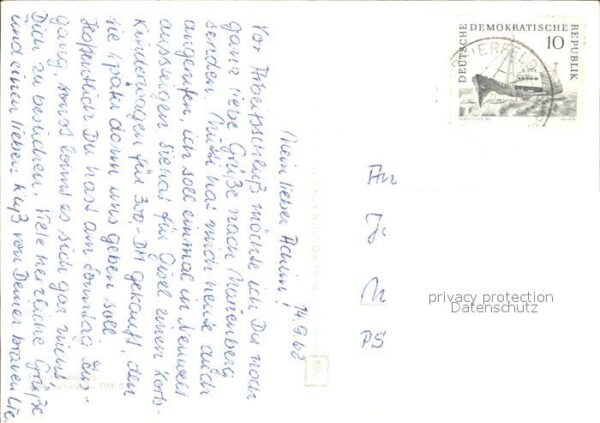 Mein lieber Heini, 14.9.62
Vor Arbeitsschluß möchte ich Dir noch
ganz liebe Grüße nach Marienberg
senden. Mutti hat mich heute auch
angerufen, ich soll einmal in
aussagen sie hat für Gisel einen Korb-
Kinderwagen für 300,- DM gekauft, den
sie später dann uns geben soll.
Hoffentlich Du hast am Sonntag Aus-
gang, sonst lohnt es sich gar nicht,
Dich zu besuchen. Viele herzliche Grüße
und einen lieben Kuß von Deiner braven
An
J.
M
PS
DEUTSCHE DEMOKRATISCHE REPUBLIK
10
privacy protection
Datenschutz